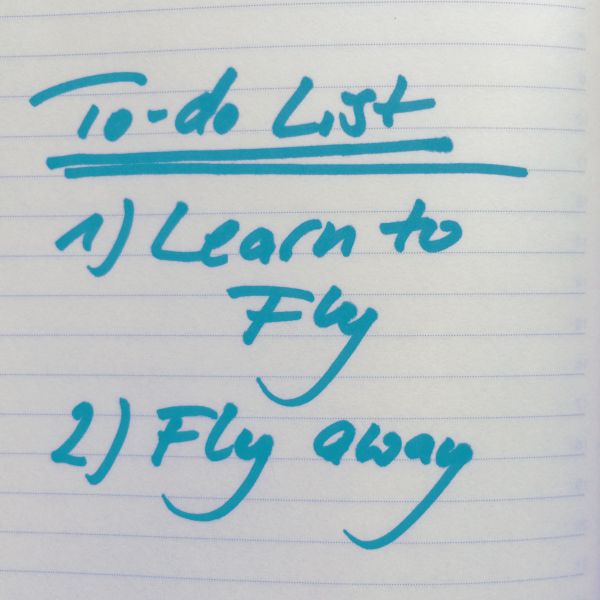 To-do List
1) Learn to
Fly
2) Fly away